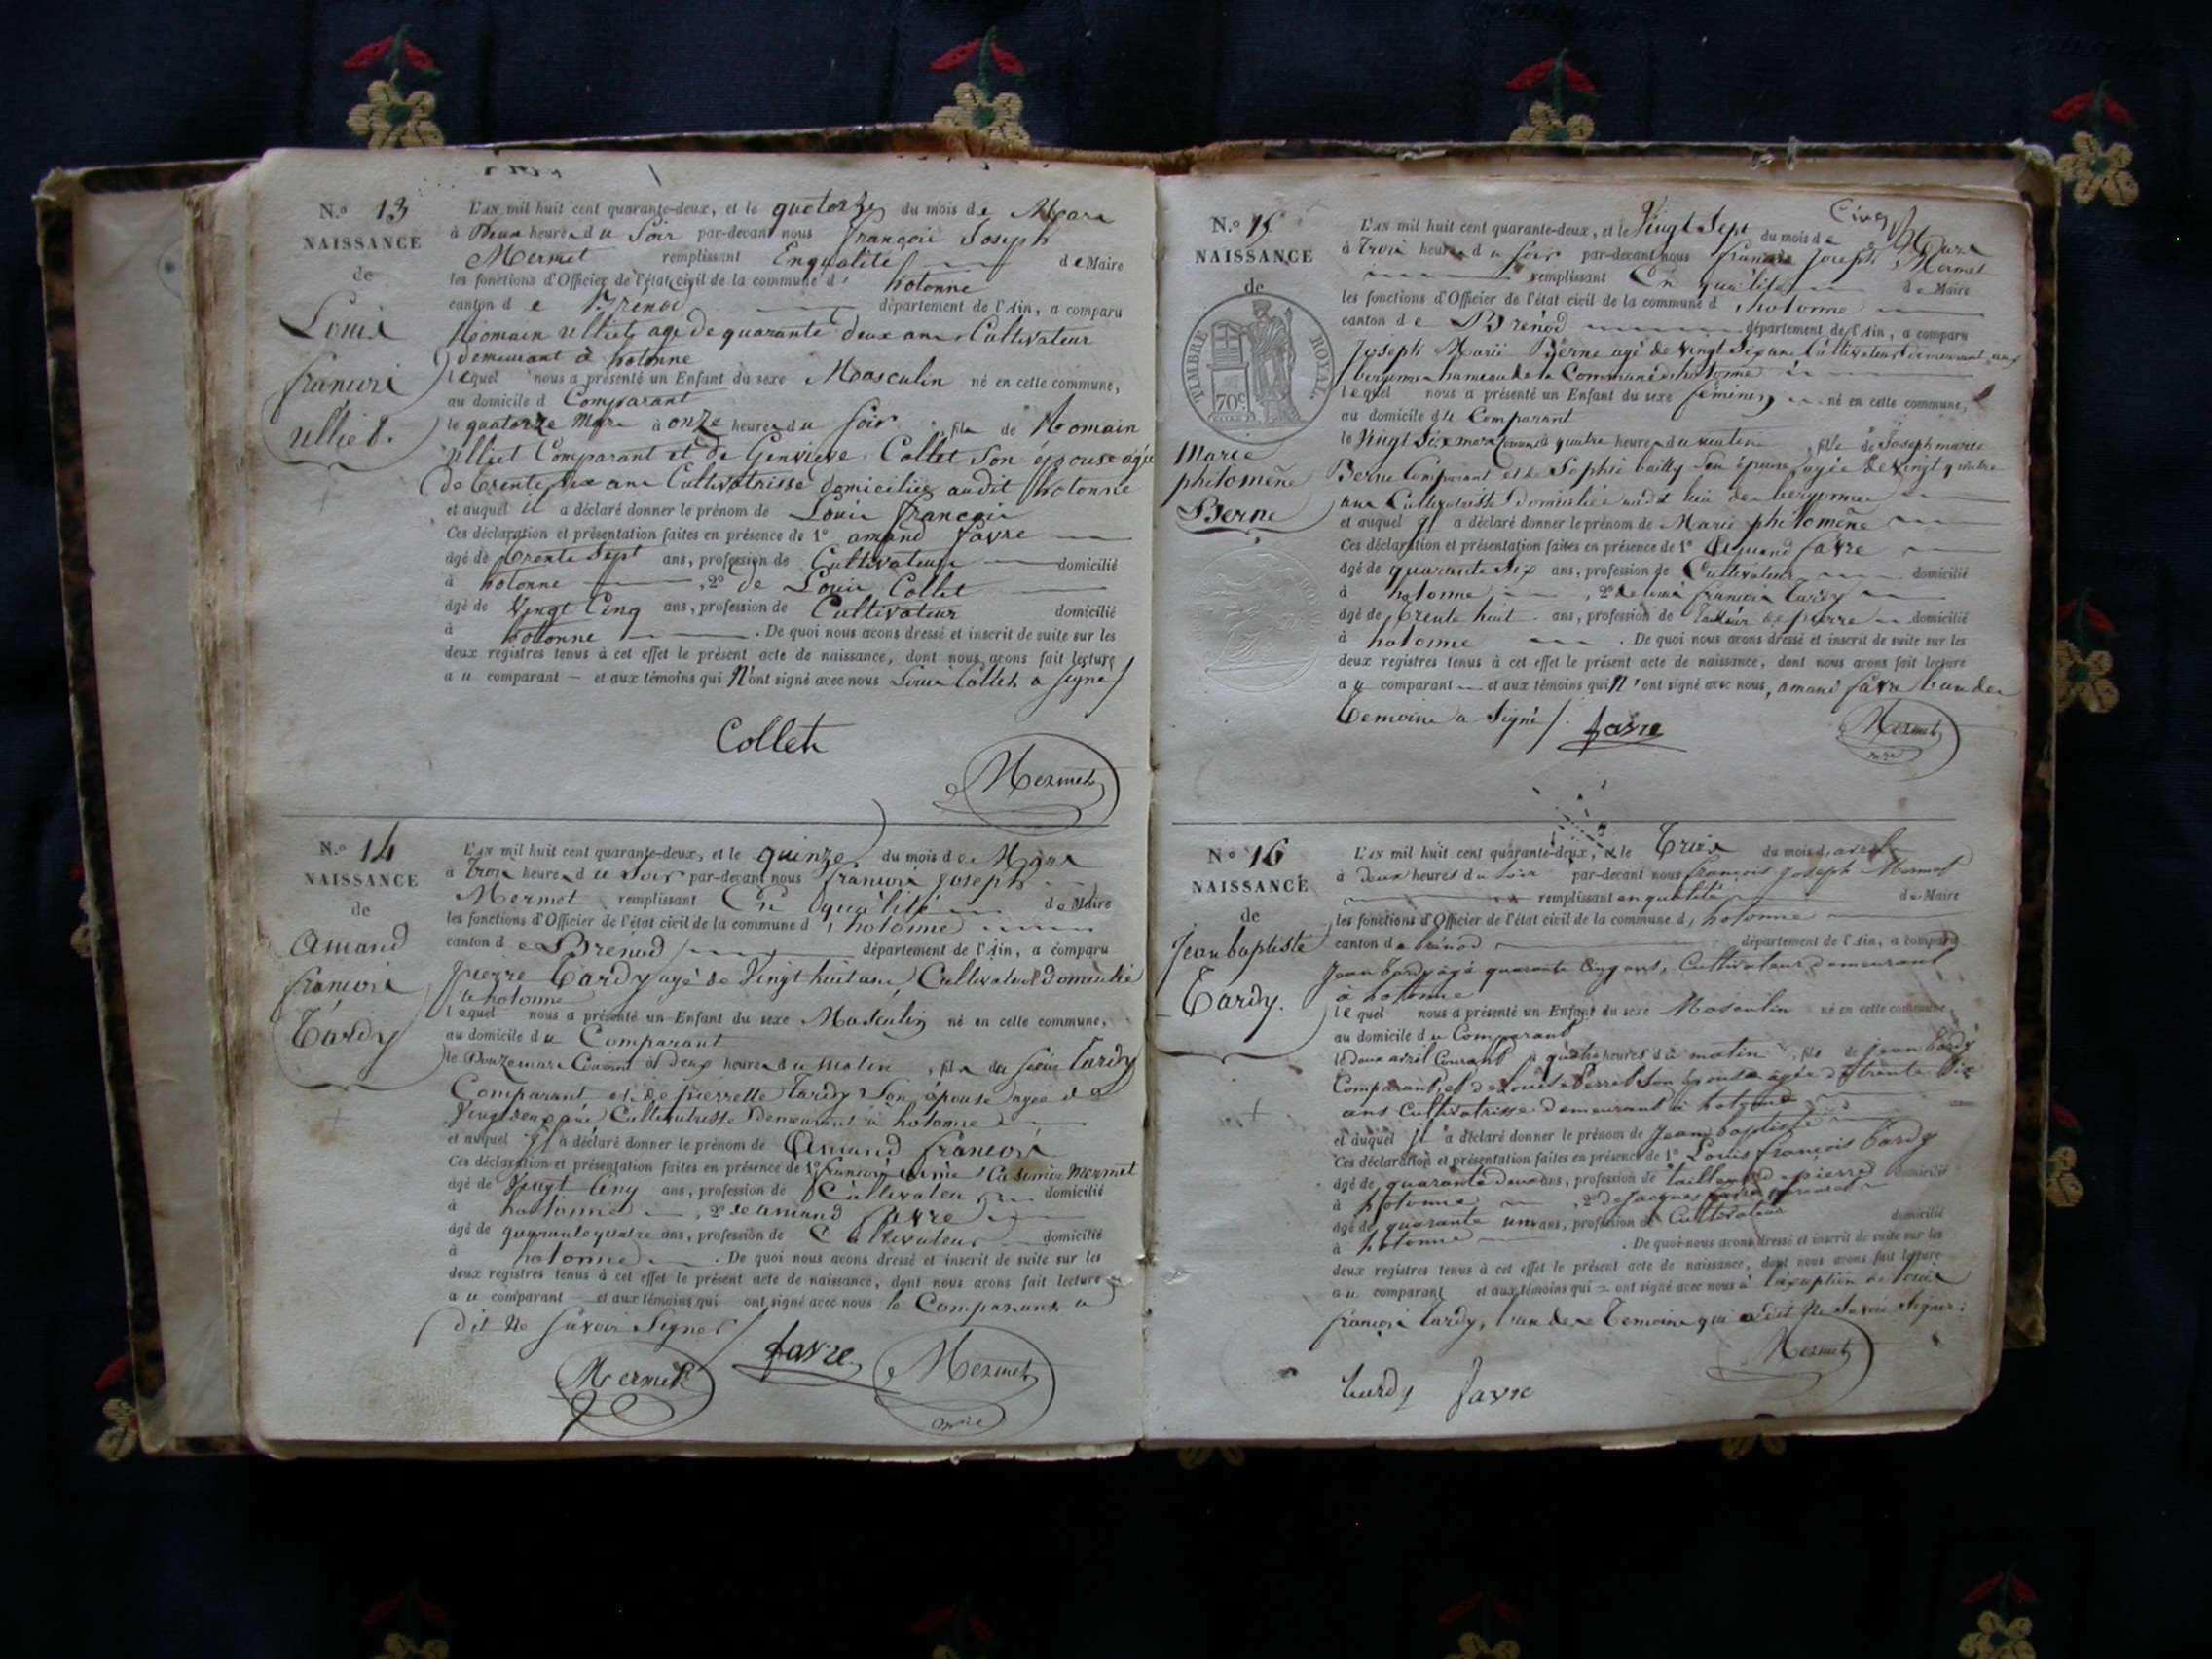 N.o 13
NAISSANCE
de
Louis
françois
Ulliet.
L'AN mil huit cent quarante-deux, et le quatorze du mois de Mars
à Deux heures du Soir par-devant nous françois Joseph
Mermet remplissant En qualité de Maire
les fonctions d'Officier de l'état civil de la commune d' hotonne
canton de Brénod département de l'Ain, a comparu
Romain Ulliet, age de quarante deux ans Cultivateur
demeurant à hotonne
lequel nous a présenté un Enfant du sexe Masculin né en cette commune,
au domicile d Comparant
le quatorze Mars à onze heures du Soir, fils de Romain
Ulliet Comparant et de Genvieve Collet Son épouse agée
de trente six ans Cultivatrisse domiciliée audit hotonne
et auquel il a déclaré donner le prénom de Louis françois
Ces déclaration et présentation faites en présence de 1° amand favre
âgé de trente Sept ans, profession de Cultivateur domicilié
à hotonne, 2° de Louis Collet
âgé de Vingt Cinq ans, profession de Cultivateur domicilié
à hotonne. De quoi nous avons dressé et inscrit de suite sur les
deux registres tenus à cet effet le présent acte de naissance, dont nous avons fait lecture
au comparant et aux témoins qui N'ont signé avec nous Louis Collet a Signé
Collet
Mermet
N.o 14
NAISSANCE
de
Amand
françois
Tardy
L'AN mil huit cent quarante-deux, et le quinze du mois de Mars
à Trois heures du Soir par-devant nous françois Joseph
Mermet remplissant En qualité de Maire
les fonctions d'Officier de l'état civil de la commune d' hotonne
canton de Brénod département de l'Ain, a comparu
pierre Tardy agé de Vingt huit ans, Cultivateur domicilié
à hotonne
lequel nous a présenté un Enfant du sexe Masculin né en cette commune,
au domicile du Comparant
le Douze mars Courant à Deux heures du matin, fils du Tardy
Comparant et de pierrette Tardy Son épouse agée de
Vingt deux ans Cultivatrisse Demeurant à hotonne
et auquel il a déclaré donner le prénom de Amand françois
Ces déclaration et présentation faites en présence de 1° françois Casimir Mermet
âgé de Vingt Cinq ans, profession de Cultivateur domicilié
à hotonne, 2° de amand favre
âgé de quarante quatre ans, profession de Cultivateur domicilié
à hotonne. De quoi nous avons dressé et inscrit de suite sur les
deux registres tenus à cet effet le présent acte de naissance, dont nous avons fait lecture
au comparant et aux témoins qui ont signé avec nous le Comparant a
dit Ne Savoir Signer
Mermet favre Mermet
mre
N.o 15
NAISSANCE
de
TIMBRE ROYAL
70c
Marie
philomène
Berne
Cinq
L'AN mil huit cent quarante-deux, et le Vingt Sept du mois de Mars
à Trois heures du Soir par-devant nous françois Joseph Mermet
remplissant En qualité de Maire
les fonctions d'Officier de l'état civil de la commune d' hotonne
canton de Brénod département de l'Ain, a comparu
Joseph Marie Berne agé de vingt Six ans Cultivateur demeurant aux
bergonnes hameau de la Commune d'hotonne
lequel nous a présenté un Enfant du sexe féminin né en cette commune,
au domicile du Comparant
le Vingt Six mars Courant à quatre heures du matin, fille de Joseph marie
Berne Comparant et de Sophie bailly Son épouse, agée de Vingt quatre
ans Cultivatrisse Domiciliée audit lieu des bergonnes
et auquel il a déclaré donner le prénom de Marie philomène
Ces déclaration et présentation faites en présence de 1° Amand favre
âgé de quarante Six ans, profession de Cultivateur domicilié
à hotonne, 2° de Louis françois Tardy
âgé de trente huit ans, profession de Tailleur de pierre domicilié
à hotonne. De quoi nous avons dressé et inscrit de suite sur les
deux registres tenus à cet effet le présent acte de naissance, dont nous avons fait lecture
au comparant et aux témoins qui N'ont signé avec nous, amand favre l'un des
Temoins a Signé. favre
Mermet
mre
N° 16
NAISSANCE
de
Jean baptiste
Tardy.
L'AN mil huit cent quarante-deux, et le Trois du mois d'avril
à deux heures du Soir par-devant nous françois Joseph Mermet
remplissant en qualité de Maire
les fonctions d'Officier de l'état civil de la commune d' hotonne
canton de brénod département de l'Ain, a comparu
Jean Tardy âgé quarante Cinq ans, Cultivateur demeurant
à hotonne
lequel nous a présenté un Enfant du sexe Masculin né en cette commune,
au domicile du Comparant
le deux avril Courant à quatre heures du matin, fils de Jean Tardy
Comparant, et de Louise Perret Son Epouse agée de trente Six
ans Cultivatrisse demeurant à hotonne
et auquel il a déclaré donner le prénom de Jean baptiste
Ces déclaration et présentation faites en présence de 1° Louis françois Tardy
âgé de quarante deux ans, profession de tailleur de pierre domicilié
à hotonne, 2° de Jacques
âgé de quarante un ans, profession de Cultivateur domicilié
à hotonne. De quoi nous avons dressé et inscrit de suite sur les
deux registres tenus à cet effet le présent acte de naissance, dont nous avons fait lecture
au comparant et aux témoins qui ont signé avec nous à l'exeption de Louis
françois tardy, l'un des Temoins qui a dit Ne Savoir Signer.
Mermet
tardy favre